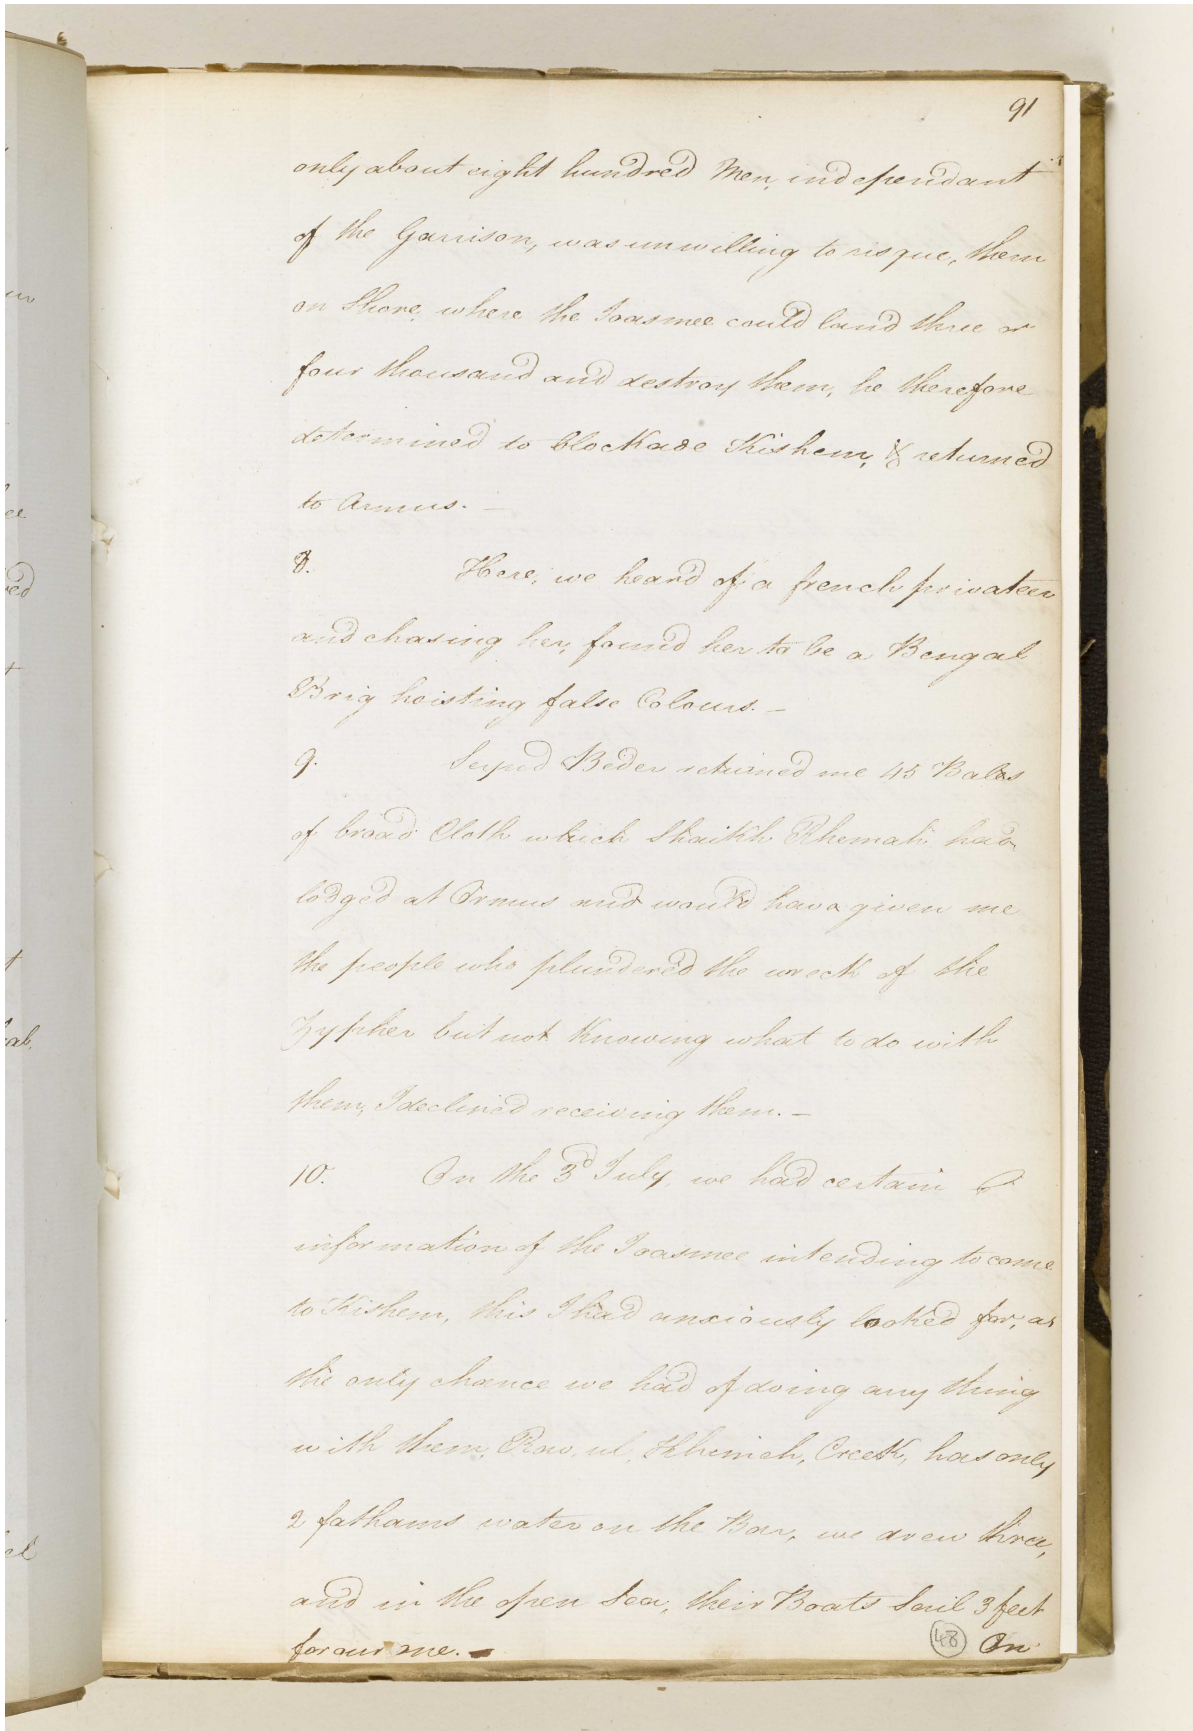 91
only about eight hundred Men, independant
of the Garrison, was unwilling to risque, them
on Shore, where the Joasmee could land three or
four thousand and destroy them, he therefore
determined to blockade Kishem, & returned
to Armus. —
8. Here, we heard of a french privateer
and chasing her, found her to be a Bengal
Brig hoisting false Colours. —
9. Seyud Beder returned me 45 Bales
of broad Cloth which Shaikh Rhemah had
lodged at Ormus and would have given me
the people who plundered the wreck of the
Zypher but not Knowing what to do with
them, I declined receiving them. —
10. On the 3d July, we had certain
information of the Joasmee intending to come
to Kishem, this I had anxiously looked for, as
the only chance we had of doing any thing
with them, Ras, ul, Creek, has only
2 fathams water on the Bar, we drew three,
and in the open Sea, their Boats Sail 3 feet
for our one. —
48 On